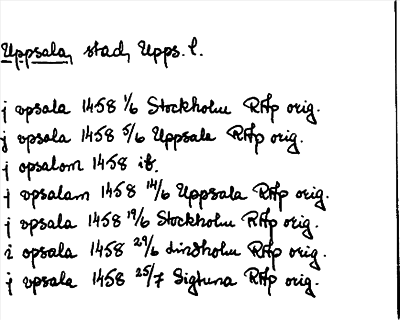 Uppsala, stad, Upps. l.
j vpsala 1458 1/6 Stockholm RAp orig.
j vpsala 1458 5/6 Uppsala RAp orig.
j opsalom 1458 ib.
j vpsalam 1458 14/6 Uppsala RAp orig.
j vpsala 1458 19/6 Stockholm RAp orig.
i opsala 1458 29/6 Lindholm RAp orig.
j vpsala 1458 25/7 Sigtuna RAp orig.